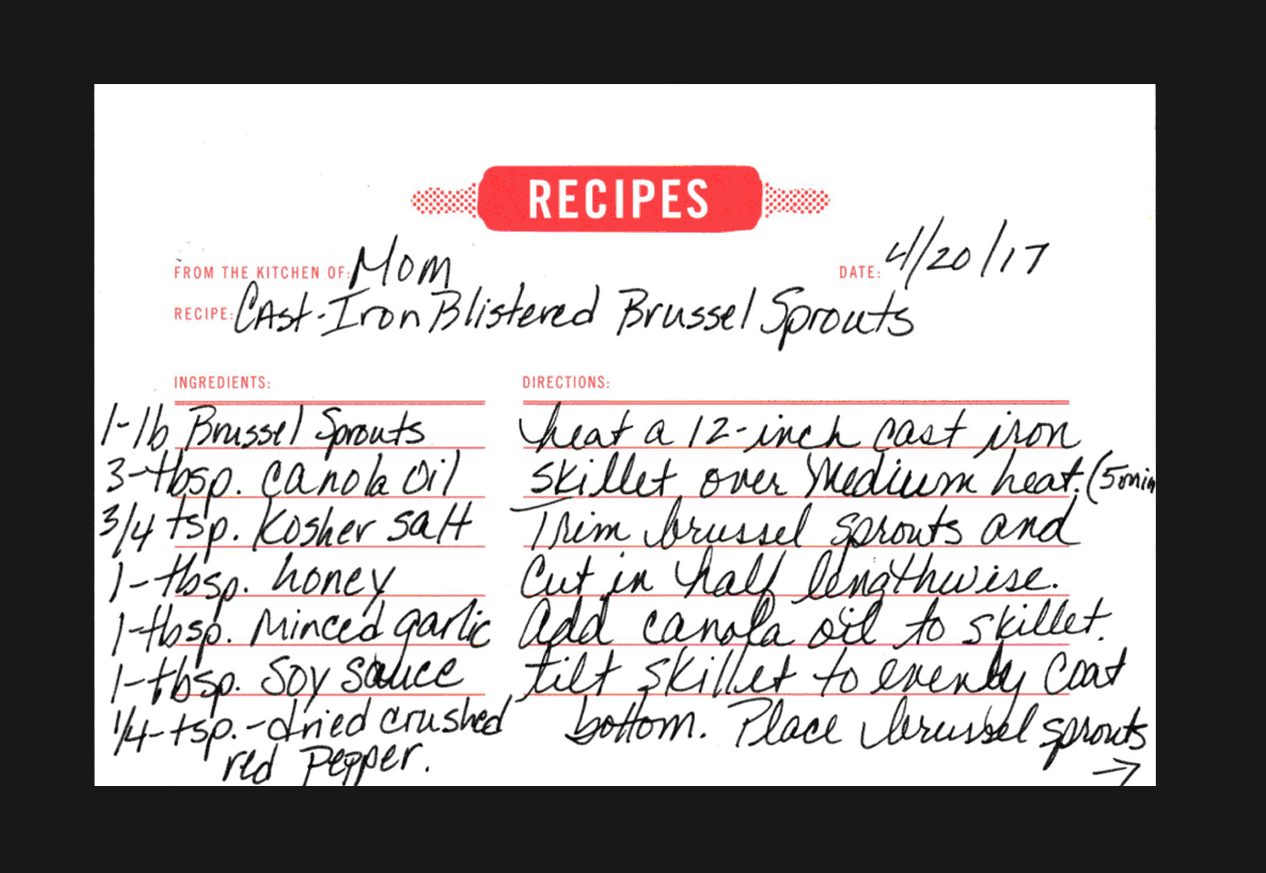 RECIPES
FROM THE KITCHEN OF: Mom
DATE: 4/20/17
RECIPE: Cast-Iron Blistered Brussel Sprouts
INGREDIENTS:
1-lb Brussel Sprouts
3-tbsp. canola oil
3/4 tsp. Kosher salt
1-tbsp. honey
1-tbsp. Minced garlic
1-tbsp. Soy sauce
1/4-tsp.-dried crushed
red pepper.
DIRECTIONS:
heat a 12-inch cast iron
skillet over medium heat. (5min
Trim brussel sprouts and
Cut in half lengthwise.
Add canola oil to skillet.
tilt skillet to evenly coat
bottom. Place brussel sprouts
→